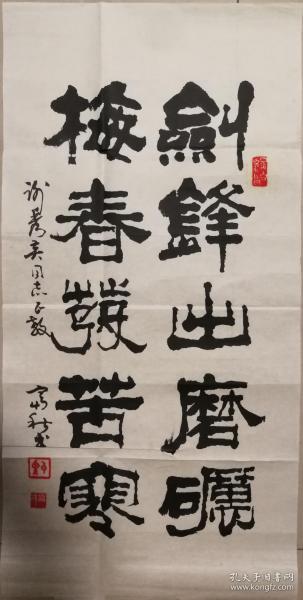 劍鋒出磨礪
梅春發苦寒
谢秀英同志正教
孔夫子旧书网